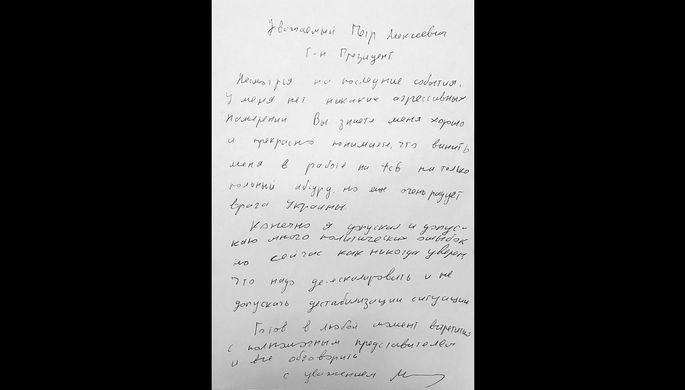 Уважаемый Петр Алексеевич
Г-н Президент
Несмотря на последние события.
У меня нет никаких агрессивных
намерений Вы знаете меня хорошо
и прекрасно понимаете, что винить
меня в работе на ФСБ не только
полный абсурд. но еще очень радует
врага Украины.
Конечно я допускал и допус-
каю много политических ошибок
но сейчас как никогда уверен
что надо де-эскалировать и не
допускать дестабилизации ситуации
Готов в любой момент встретится
с полномочным представителем
и все обговорить
с уважением